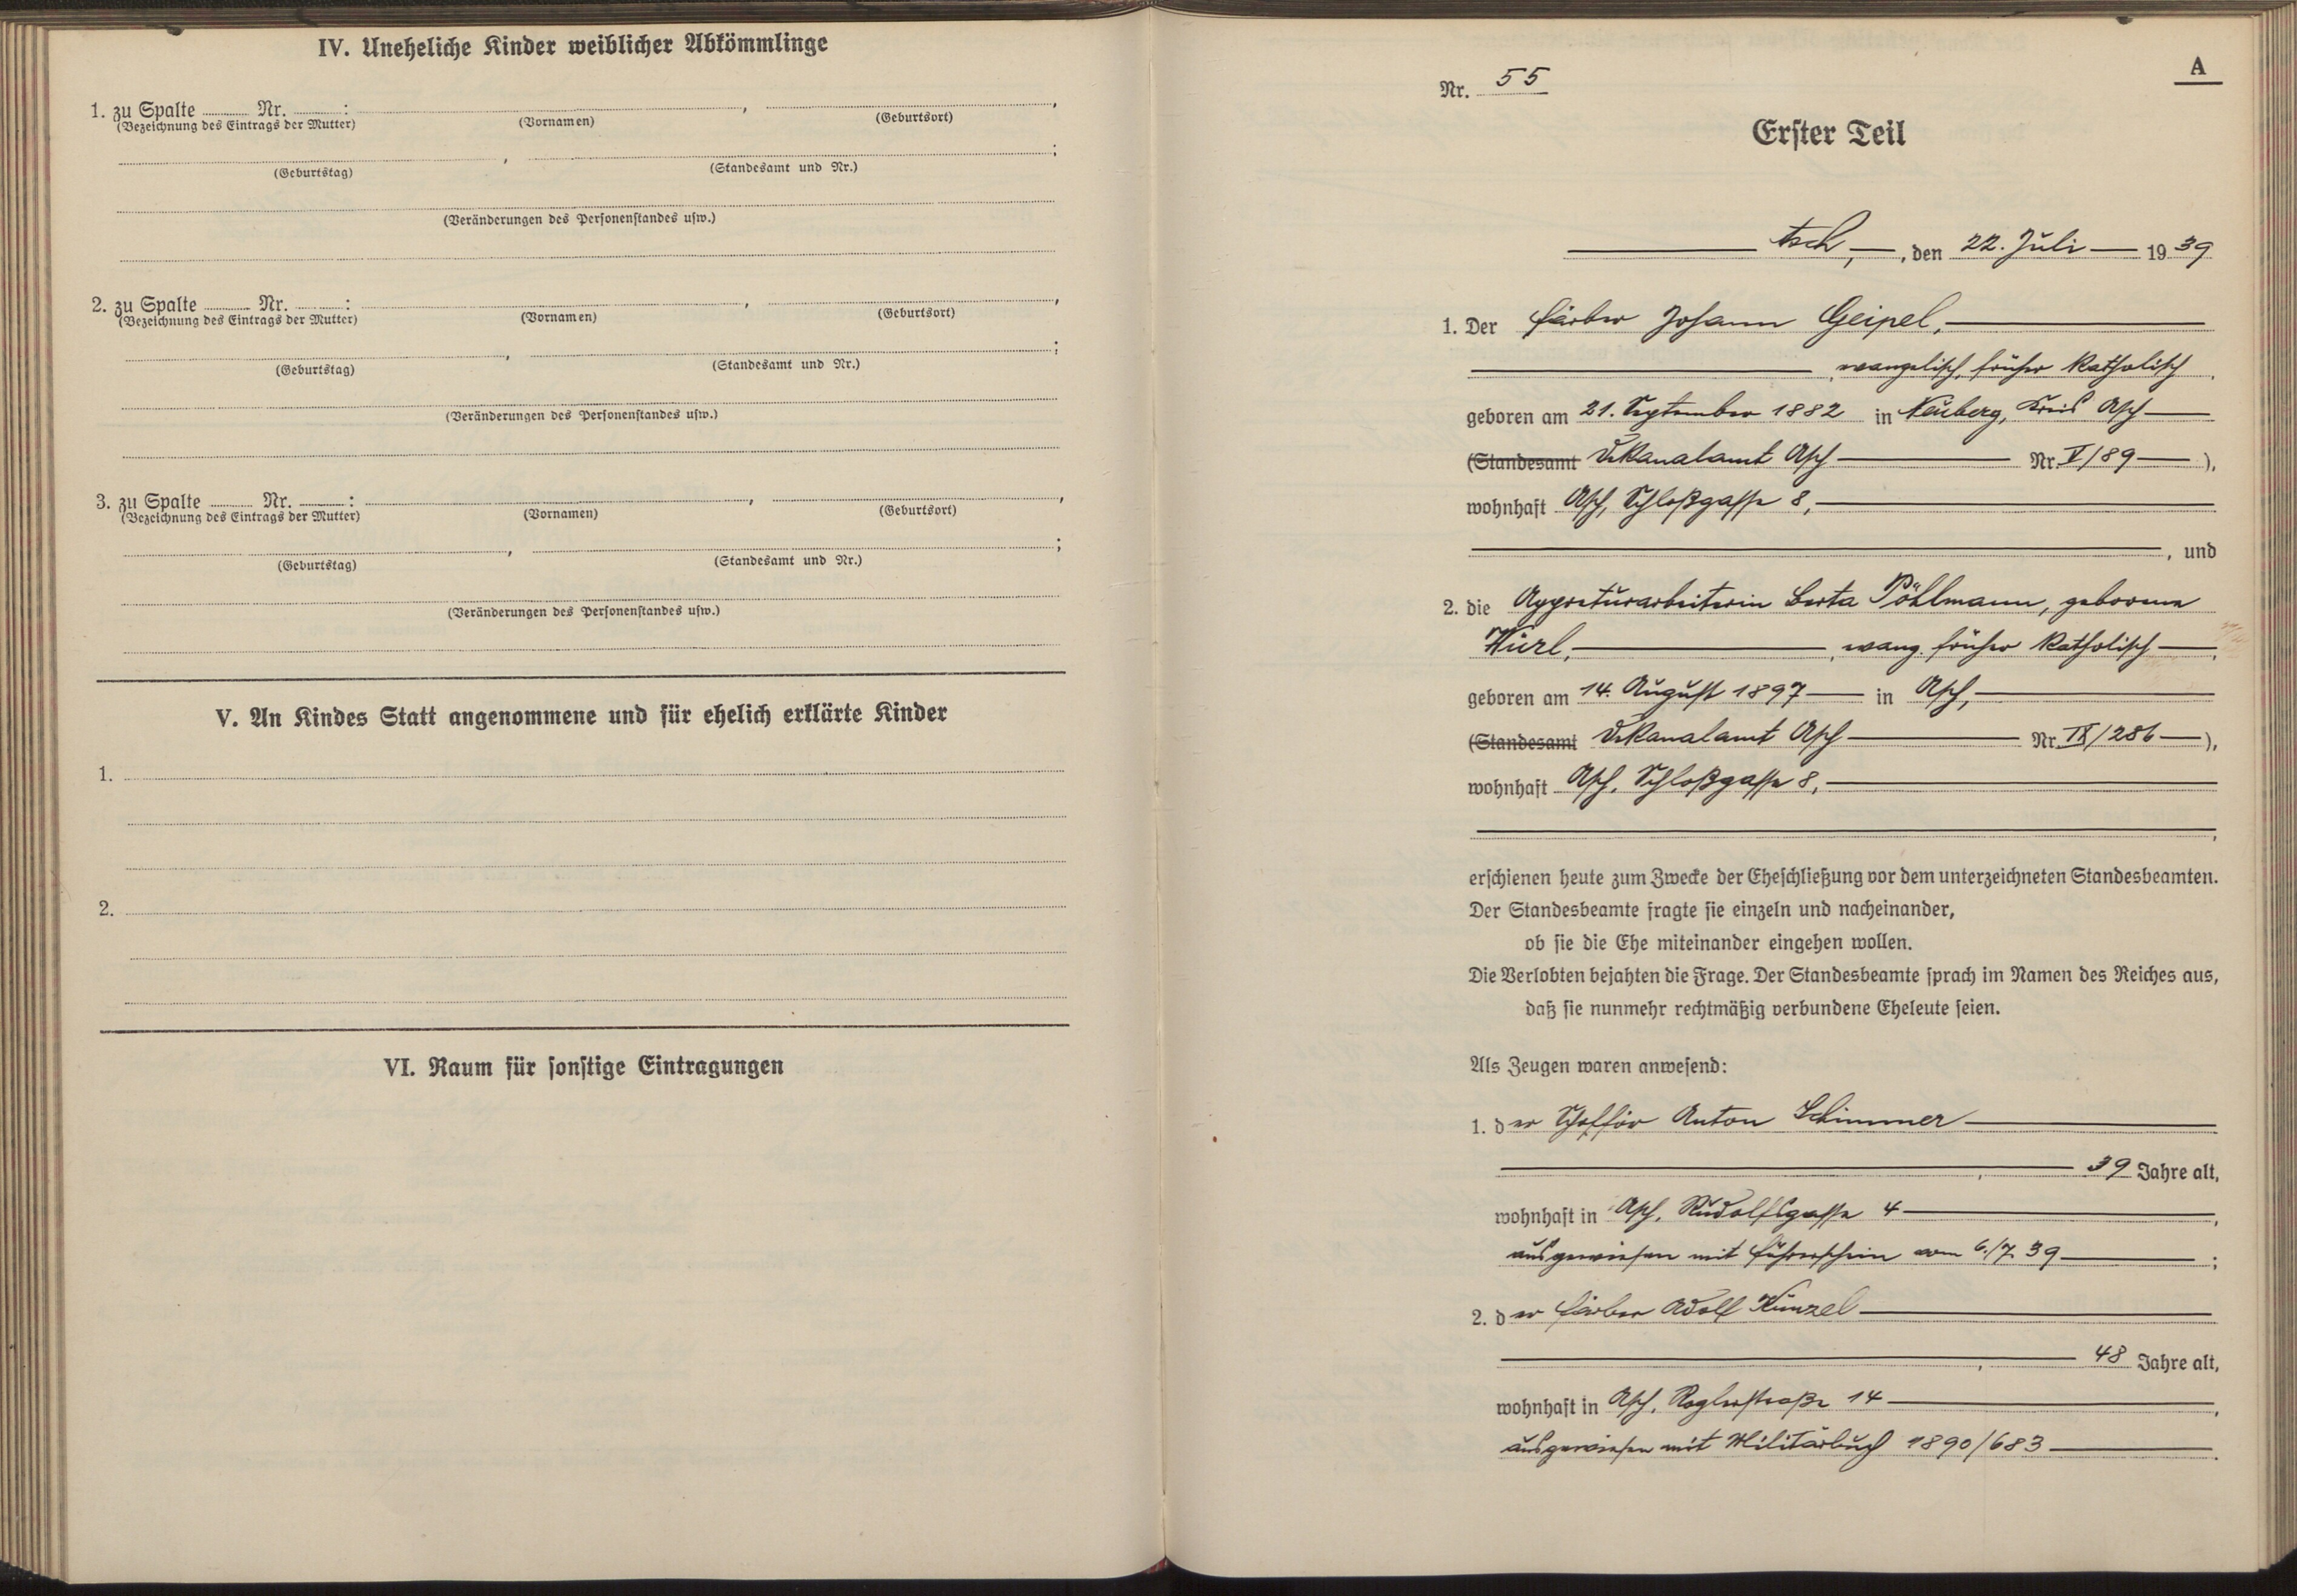 IV. Uneheliche Kinder weiblicher Abkömmlinge
1. zu Spalte Nr. :
(Bezeichnung des Eintrags der Mutter) (Vornamen) (Geburtsort)
(Geburtstag) (Standesamt und Nr.)
(Veränderungen des Personenstandes usw.)
2. zu Spalte Nr. :
(Bezeichnung des Eintrags der Mutter) (Vornamen) (Geburtsort)
(Geburtstag) (Standesamt und Nr.)
(Veränderungen des Personenstandes usw.)
3. zu Spalte Nr. :
(Bezeichnung des Eintrags der Mutter) (Vornamen) (Geburtsort)
(Geburtstag) (Standesamt und Nr.)
(Veränderungen des Personenstandes usw.)
V. An Kindes Statt angenommene und für ehelich erklärte Kinder
1.
2.
VI. Raum für sonstige Eintragungen
A
Nr. 55
Erster Teil
Asch, den 22. Juli 1939
1. Der Färber Johann Geipel,
evangelisch, früher katholisch,
geboren am 21. September 1882 in Neuberg, Kreis Asch
(Standesamt Dekanalamt Asch Nr. V/89),
wohnhaft Asch, Schloßgasse 8,
, und
2. die Appreturarbeiterin Berta Pöhlmann, geborene
Würl, evang. früher katholisch,
geboren am 14. August 1897 in Asch,
(Standesamt Dekanalamt Asch Nr. IX/286),
wohnhaft Asch, Schloßgasse 8,
erschienen heute zum Zwecke der Eheschließung vor dem unterzeichneten Standesbeamten.
Der Standesbeamte fragte sie einzeln und nacheinander,
ob sie die Ehe miteinander eingehen wollen.
Die Verlobten bejahten die Frage. Der Standesbeamte sprach im Namen des Reiches aus,
daß sie nunmehr rechtmäßig verbundene Eheleute seien.
Als Zeugen waren anwesend:
1. der Schofför Anton Schimmer
39 Jahre alt,
wohnhaft in Asch, Rudolfsgasse 4,
ausgewiesen mit Führerschein vom 6./7. 39;
2. der Färber Adolf Künzel
48 Jahre alt,
wohnhaft in Asch, Roglerstraße 14,
ausgewiesen mit Militärbuch 1890/683.